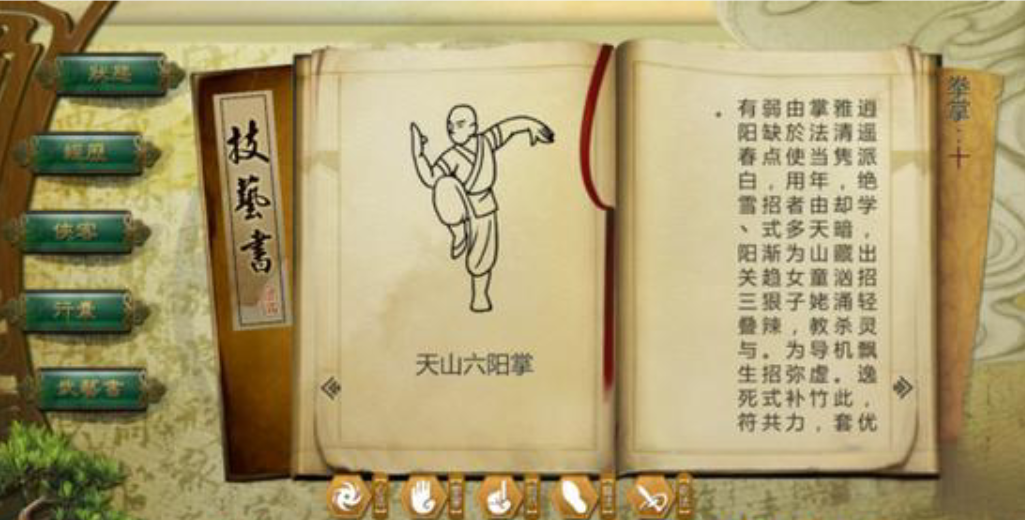 狀態
經歷
俠客
行囊
武藝書
技藝書
天山六阳掌
拳掌：十
逍遥派绝学，出招轻灵飘逸，优
雅清隽，却暗藏汹涌杀机。此套
掌法当年由天山童姥教导虚竹，
由於使用者多为女子，为弥补力
弱缺点，招式渐趋狠辣。招式共
有阳春白雪、阳关三叠与生死符
。